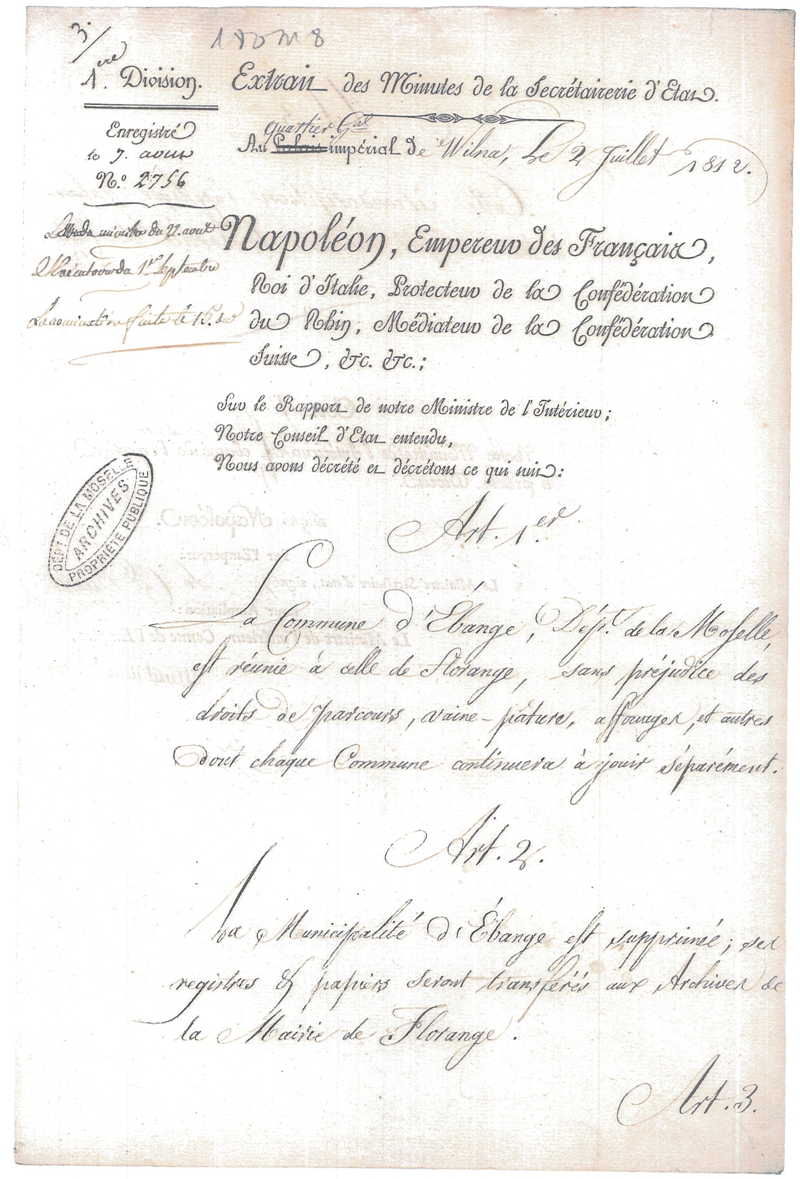 3.
1ere Division.
Enregistré
le 7. aout
N.º 2756
Extrait des Minutes de la Secrétairerie d'Etat.
quartier Gal
Au Palais impérial de Wilna, Le 2 Juillet 1812.
du 27. aout
du 1er Septembre
faite le 15.
Napoléon, Empereur des Français,
Roi d'Italie, Protecteur de la Confédération
du Rhin, Médiateur de la Confédération
Suisse, &c. &c.;
Sur le Rapport de notre Ministre de l'Intérieur;
Notre Conseil d'Etat entendu,
Nous avons décrété et décrétons ce qui suit:
DÉPT DE LA MOSELLE
ARCHIVES
PROPRIÉTÉ PUBLIQUE
Art. 1.er
La Commune d'Ebange, Dépt. de la Moselle,
est réunie à celle de Florange, sans préjudice des
droits de parcours, vaine-pâture, affouages, et autres
dont chaque Commune continuera à jouir séparément.
Art. 2.
La Municipalité d'Ébange est supprimée; ses
registres & papiers seront transférés aux Archives de
la Mairie de Florange.
Art. 3.